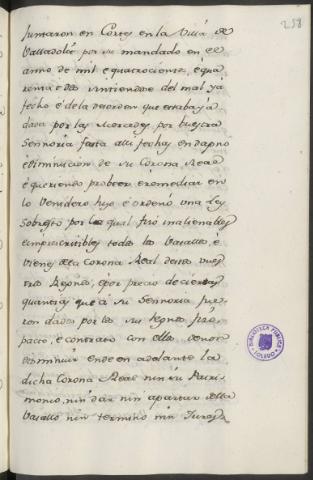 258
Juntaron en Cortes en la Villa de
Valladolid por su mandado en el
anno de mil e quatrocientos, e qua
renta e dos sintiendose del mal ya
fecho e de la deorden que estaba ya
dava por las mercedes por buestra
Sennoria fasta alli fechas en dapno
e diminucion de su Corona Real
e queriendo probeer e remediar en
lo Venidero hizo e ordenó una Ley
Sobresto por la qual fizo inalienables
e imprescriptibles todos los Vasallos, e
Vienes de la Corona Real destos vues
tros Reynos, e por precio de ciertas
quantias que a su Sennoria fue
ron dadas por los sus Reynos fizo
pacto, e contrato con ellos de non
disminuir ende en adelante la
dicha Corona Real nin su Patri
monio, nin dar nin apartar della
Vasallos nin termino nin Jurisd
BIBLIOTECA PUBLICA
TOLEDO